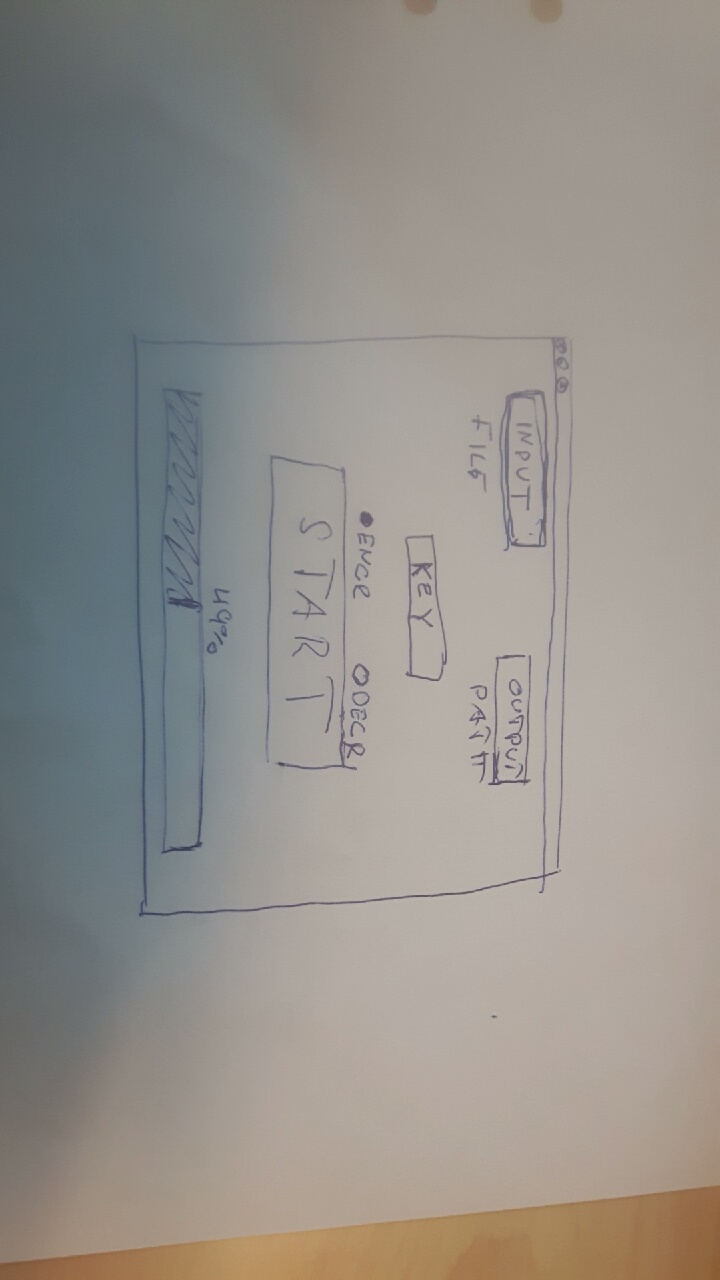 INPUT
FILE
OUTPUT
PATH
KEY
ENCR
DECR
START
49%